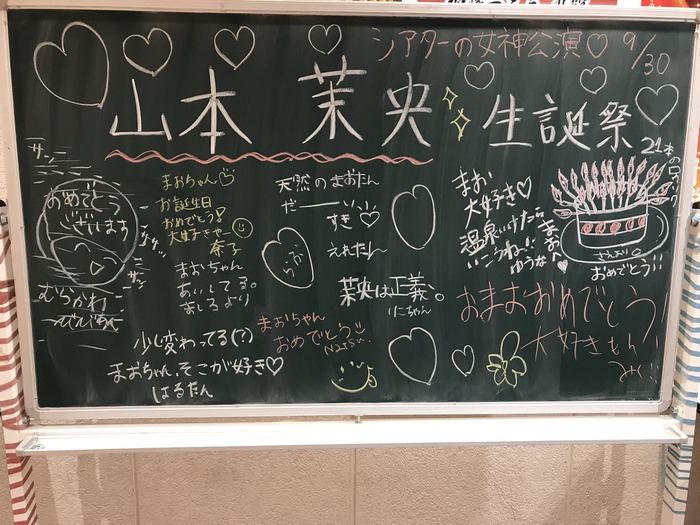 シアターの女神公演♡ 9/30
山本 茉央 生誕祭
サン
おめでとう
ございます
むらかわ
まおちゃん
お誕生日
おめでとう!
大好きやー
奈子
まおちゃん
あいしてる。
ましろより
天然のまおたん
だーーーいい
すき♡
えれたん
茉央は正義。
りこちゃん
まお
大好き♡
温泉いけたら
いこうね!! まお♡
ゆうな
21本のロウソク
さおり
おめでとう!!
少し変わってる(?)
まおちゃん、そこが好き♡
はるたん
まおちゃん
おめでとう
おまおおめでとう!
大好きもん!
みい